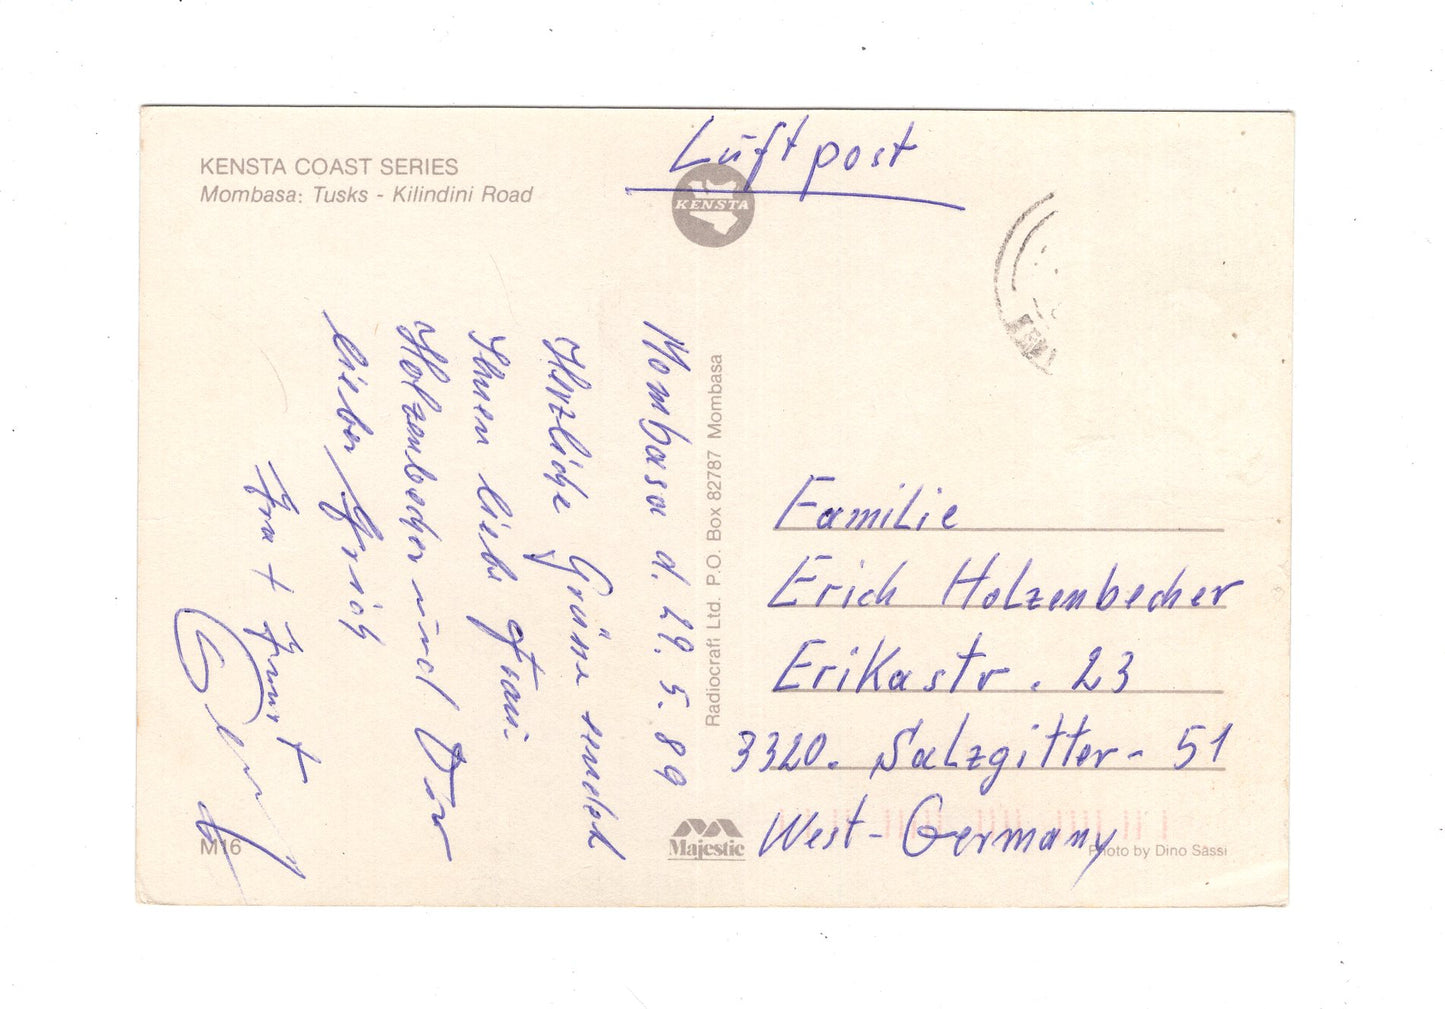 KENSTA COAST SERIES
Mombasa: Tusks - Kilindini Road
Luftpost
KENSTA
Mombasa d. 29. 5. 89
Herzliche Grüsse sendet
Ihnen liebe Frau
Holzenbecher und Dir
lieber Erich
Radiocraft Ltd. P.O. Box 82787 Mombasa
Familie
Erich Holzenbecher
Erikastr. 23
3320. Salzgitter - 51
West-Germany
M16
Majestic
Photo by Dino Sassi